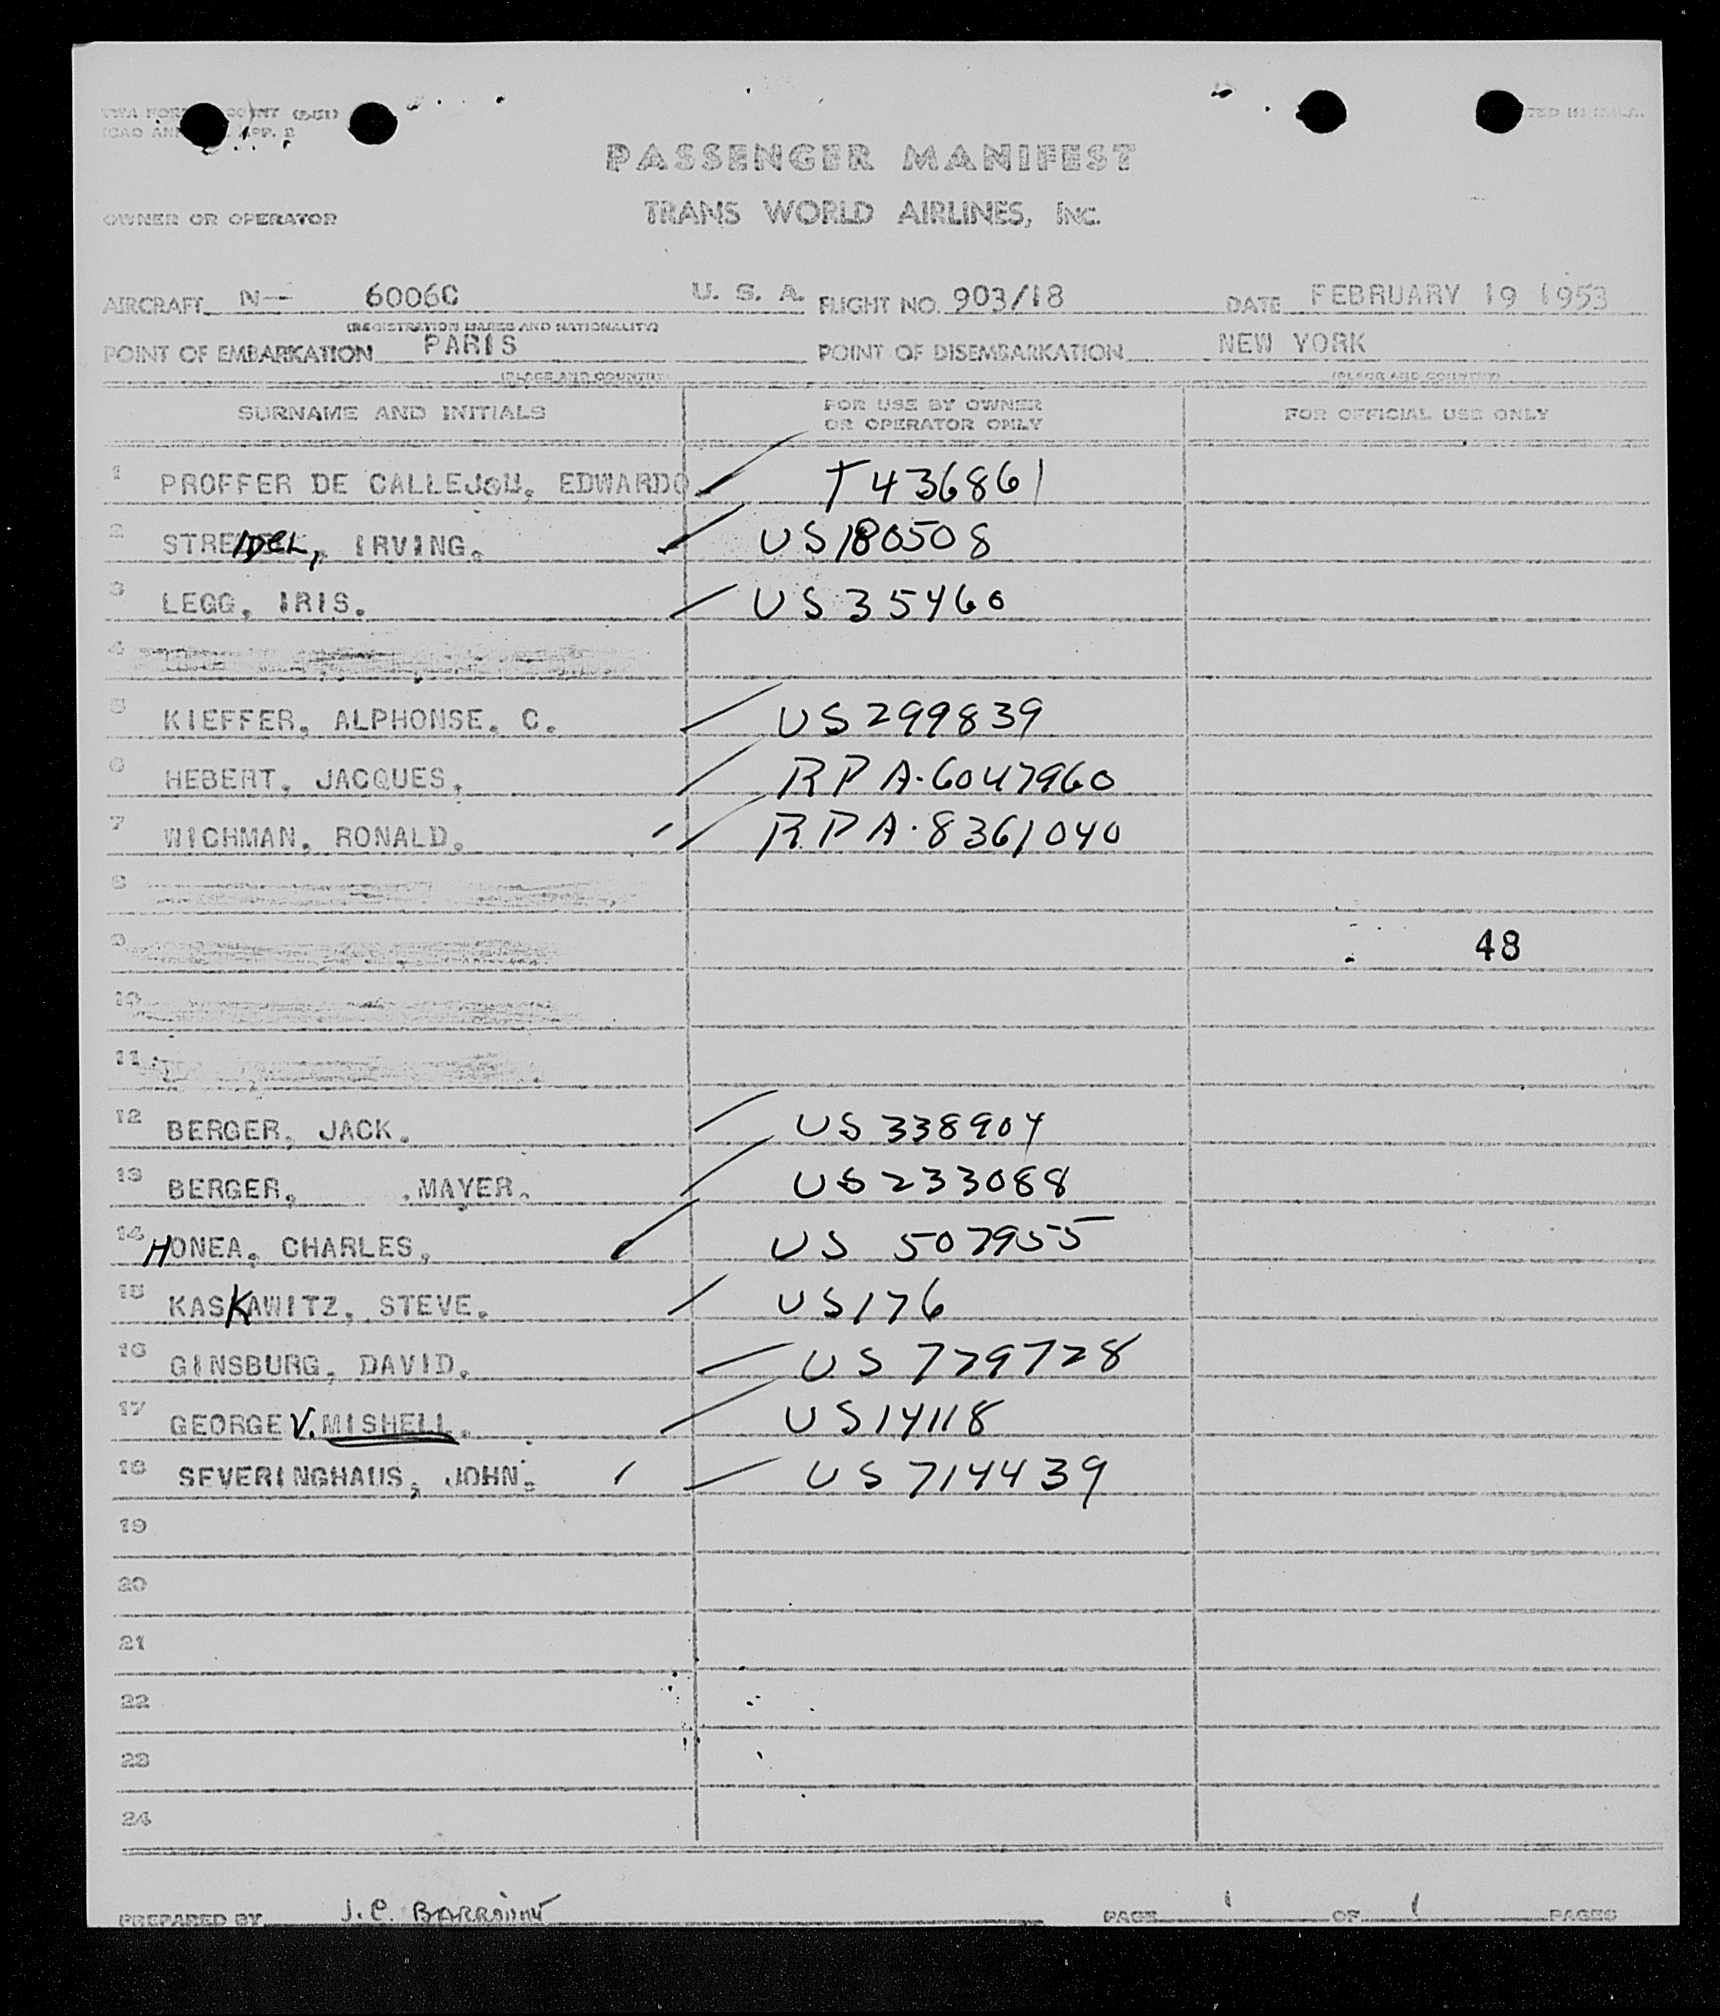 PASSENGER MANIFEST
OWNER OR OPERATOR TRANS WORLD AIRLINES, INC.
AIRCRAFT N— 6006C U. S. A. FLIGHT NO. 903/18 DATE FEBRUARY 19 1953
(REGISTRATION MARKS AND NATIONALITY)
POINT OF EMBARKATION PARIS POINT OF DISEMBARKATION NEW YORK
(PLACE AND COUNTRY) (PLACE AND COUNTRY)
SURNAME AND INITIALS FOR USE BY OWNER OR OPERATOR ONLY FOR OFFICIAL USE ONLY
1 PROFFER DE CALLEJON, EDWARDO T436861
2 STREIDEL, IRVING. US180508
3 LEGG, IRIS. US35460
4
5 KIEFFER, ALPHONSE. C. US299839
6 HEBERT, JACQUES, RPA.6047960
7 WICHMAN, RONALD, RPA.8361040
8
9 48
10
11
12 BERGER, JACK. US338904
13 BERGER, MAYER. US233088
14 HONEA, CHARLES, US 507955
15 KASKAWITZ, STEVE. US176
16 GINSBURG, DAVID. US 729728
17 GEORGE V. MISHELL. US14118
18 SEVERINGHAUS, JOHN. US714439
19
20
21
22
23
24
PREPARED BY J. C. PAGE 1 OF 1 PAGES